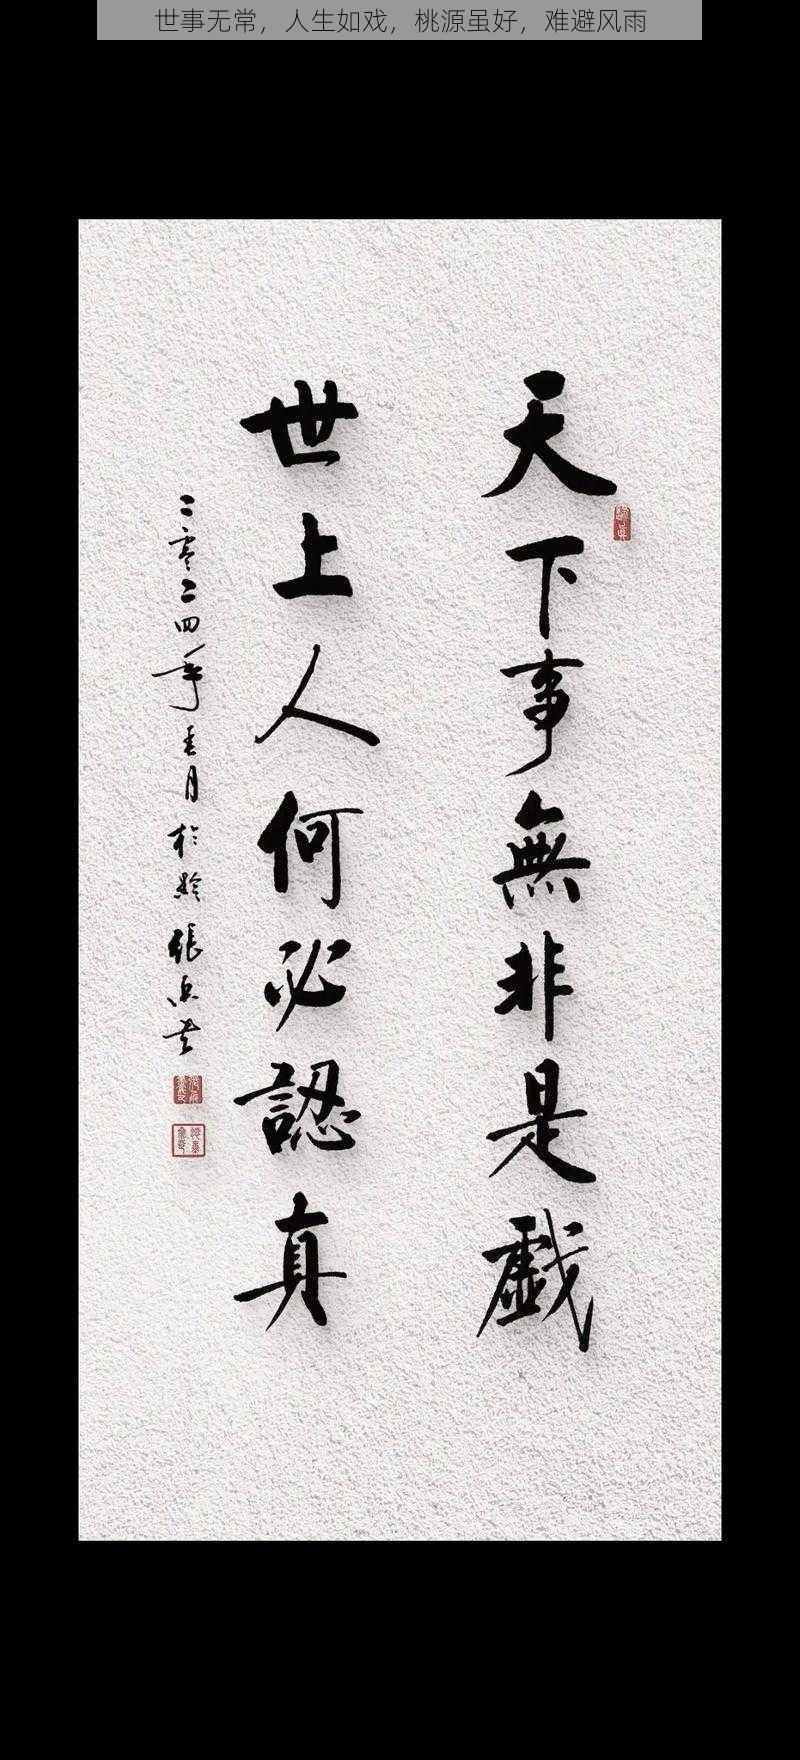 世事无常，人生如戏，桃源虽好，难避风雨
天下事無非是戲
世上人何必認真
二零二四年
月於
張